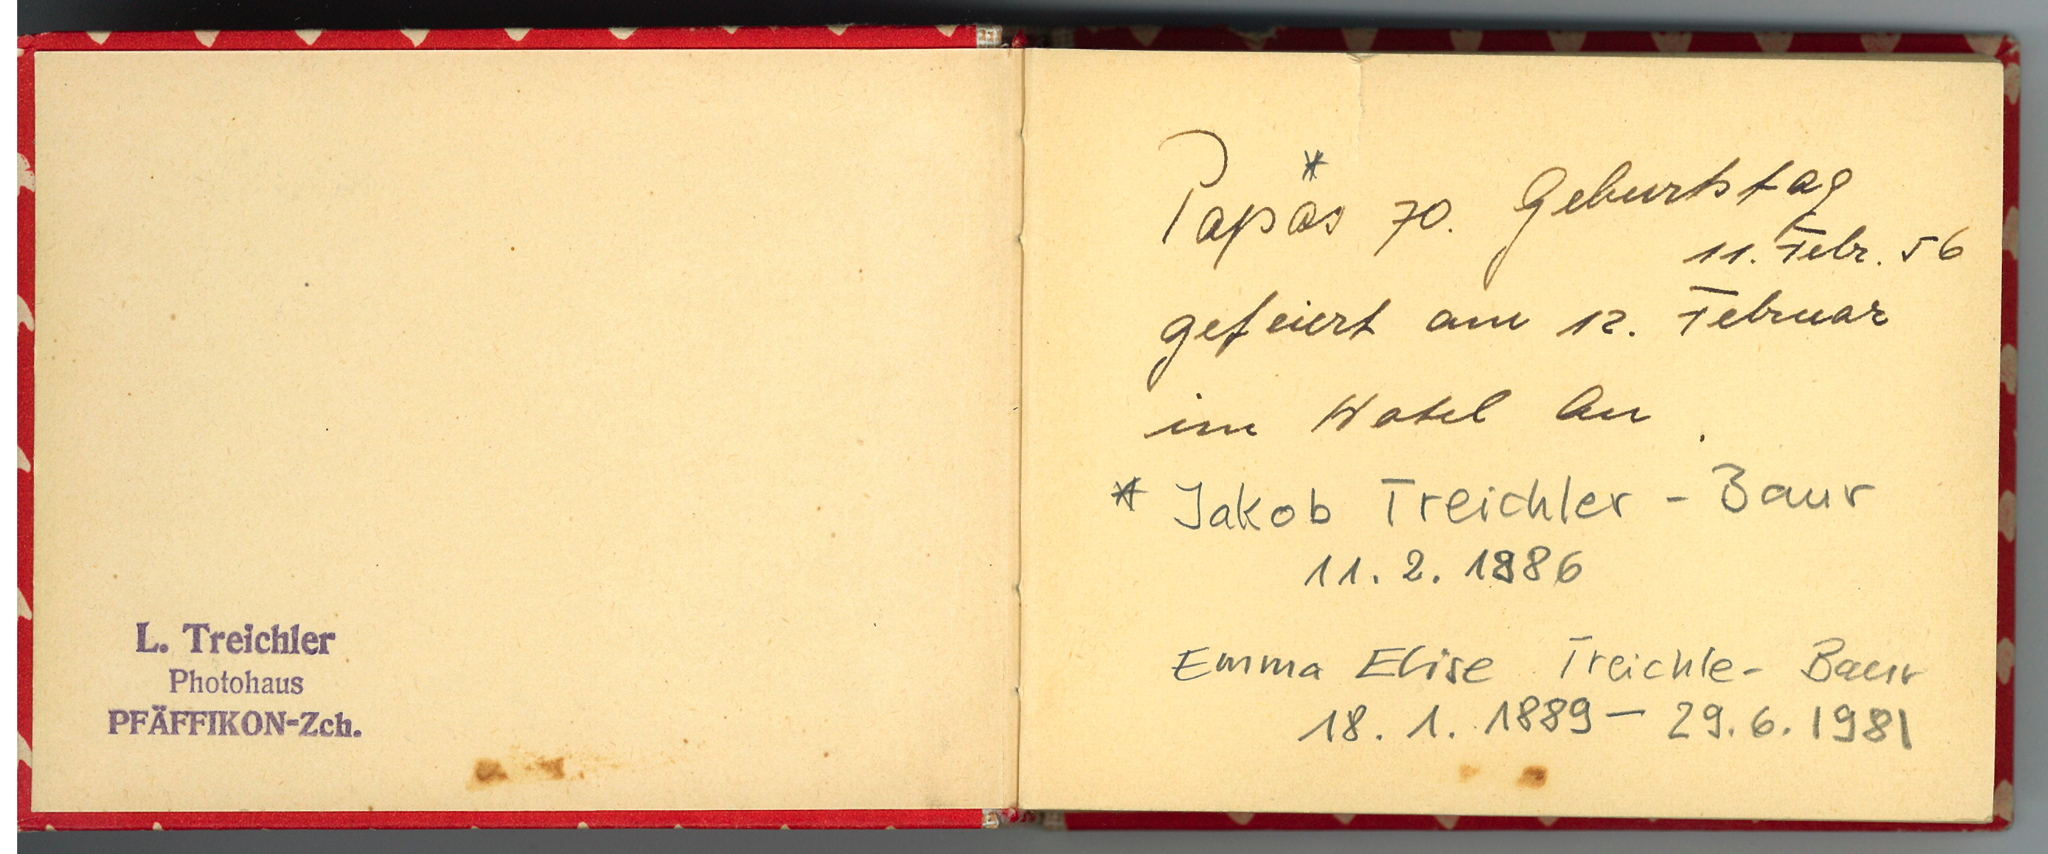 L. Treichler
Photohaus
PFÄFFIKON-Zch.
Papas* 70. Geburtstag
11. Febr. 56
gefeiert am 12. Februar
im Hotel Au.
* Jakob Treichler - Baur
11. 2. 1886
Emma Elise Treichle- Baur
18. 1. 1889 - 29. 6. 1981